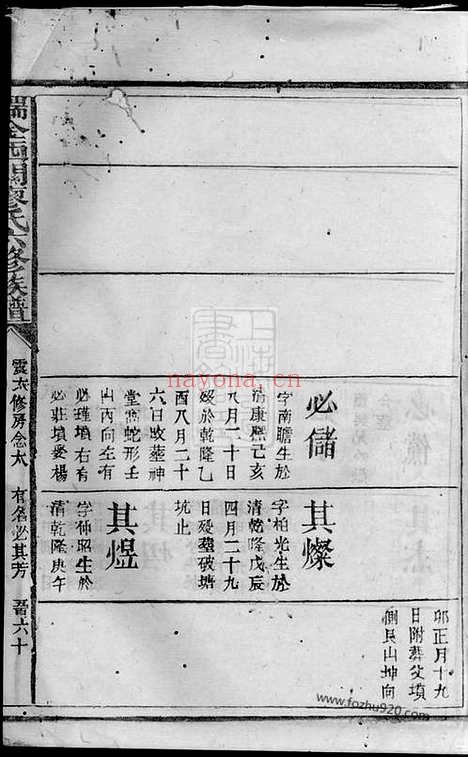 卯正月十九
日附葬父墳
側艮山坤向
必儲
字南瞻生於
清康熙己亥
八月二十日
歿於乾隆乙
酉八月二十
六日改葬神
堂窩蛇形壬
山丙向左有
必瑾墳右有
必莊墳妻楊
其燦
字柏光生於
清乾隆戊辰
四月二十九
日歿葬破塘
坑止
其煜
字仲昭生於
清乾隆庚午
瑞金西關廖氏六修族譜
雲太修房念太 有名必其芳 晉六十
nayona.cn
www.fozhu920.com